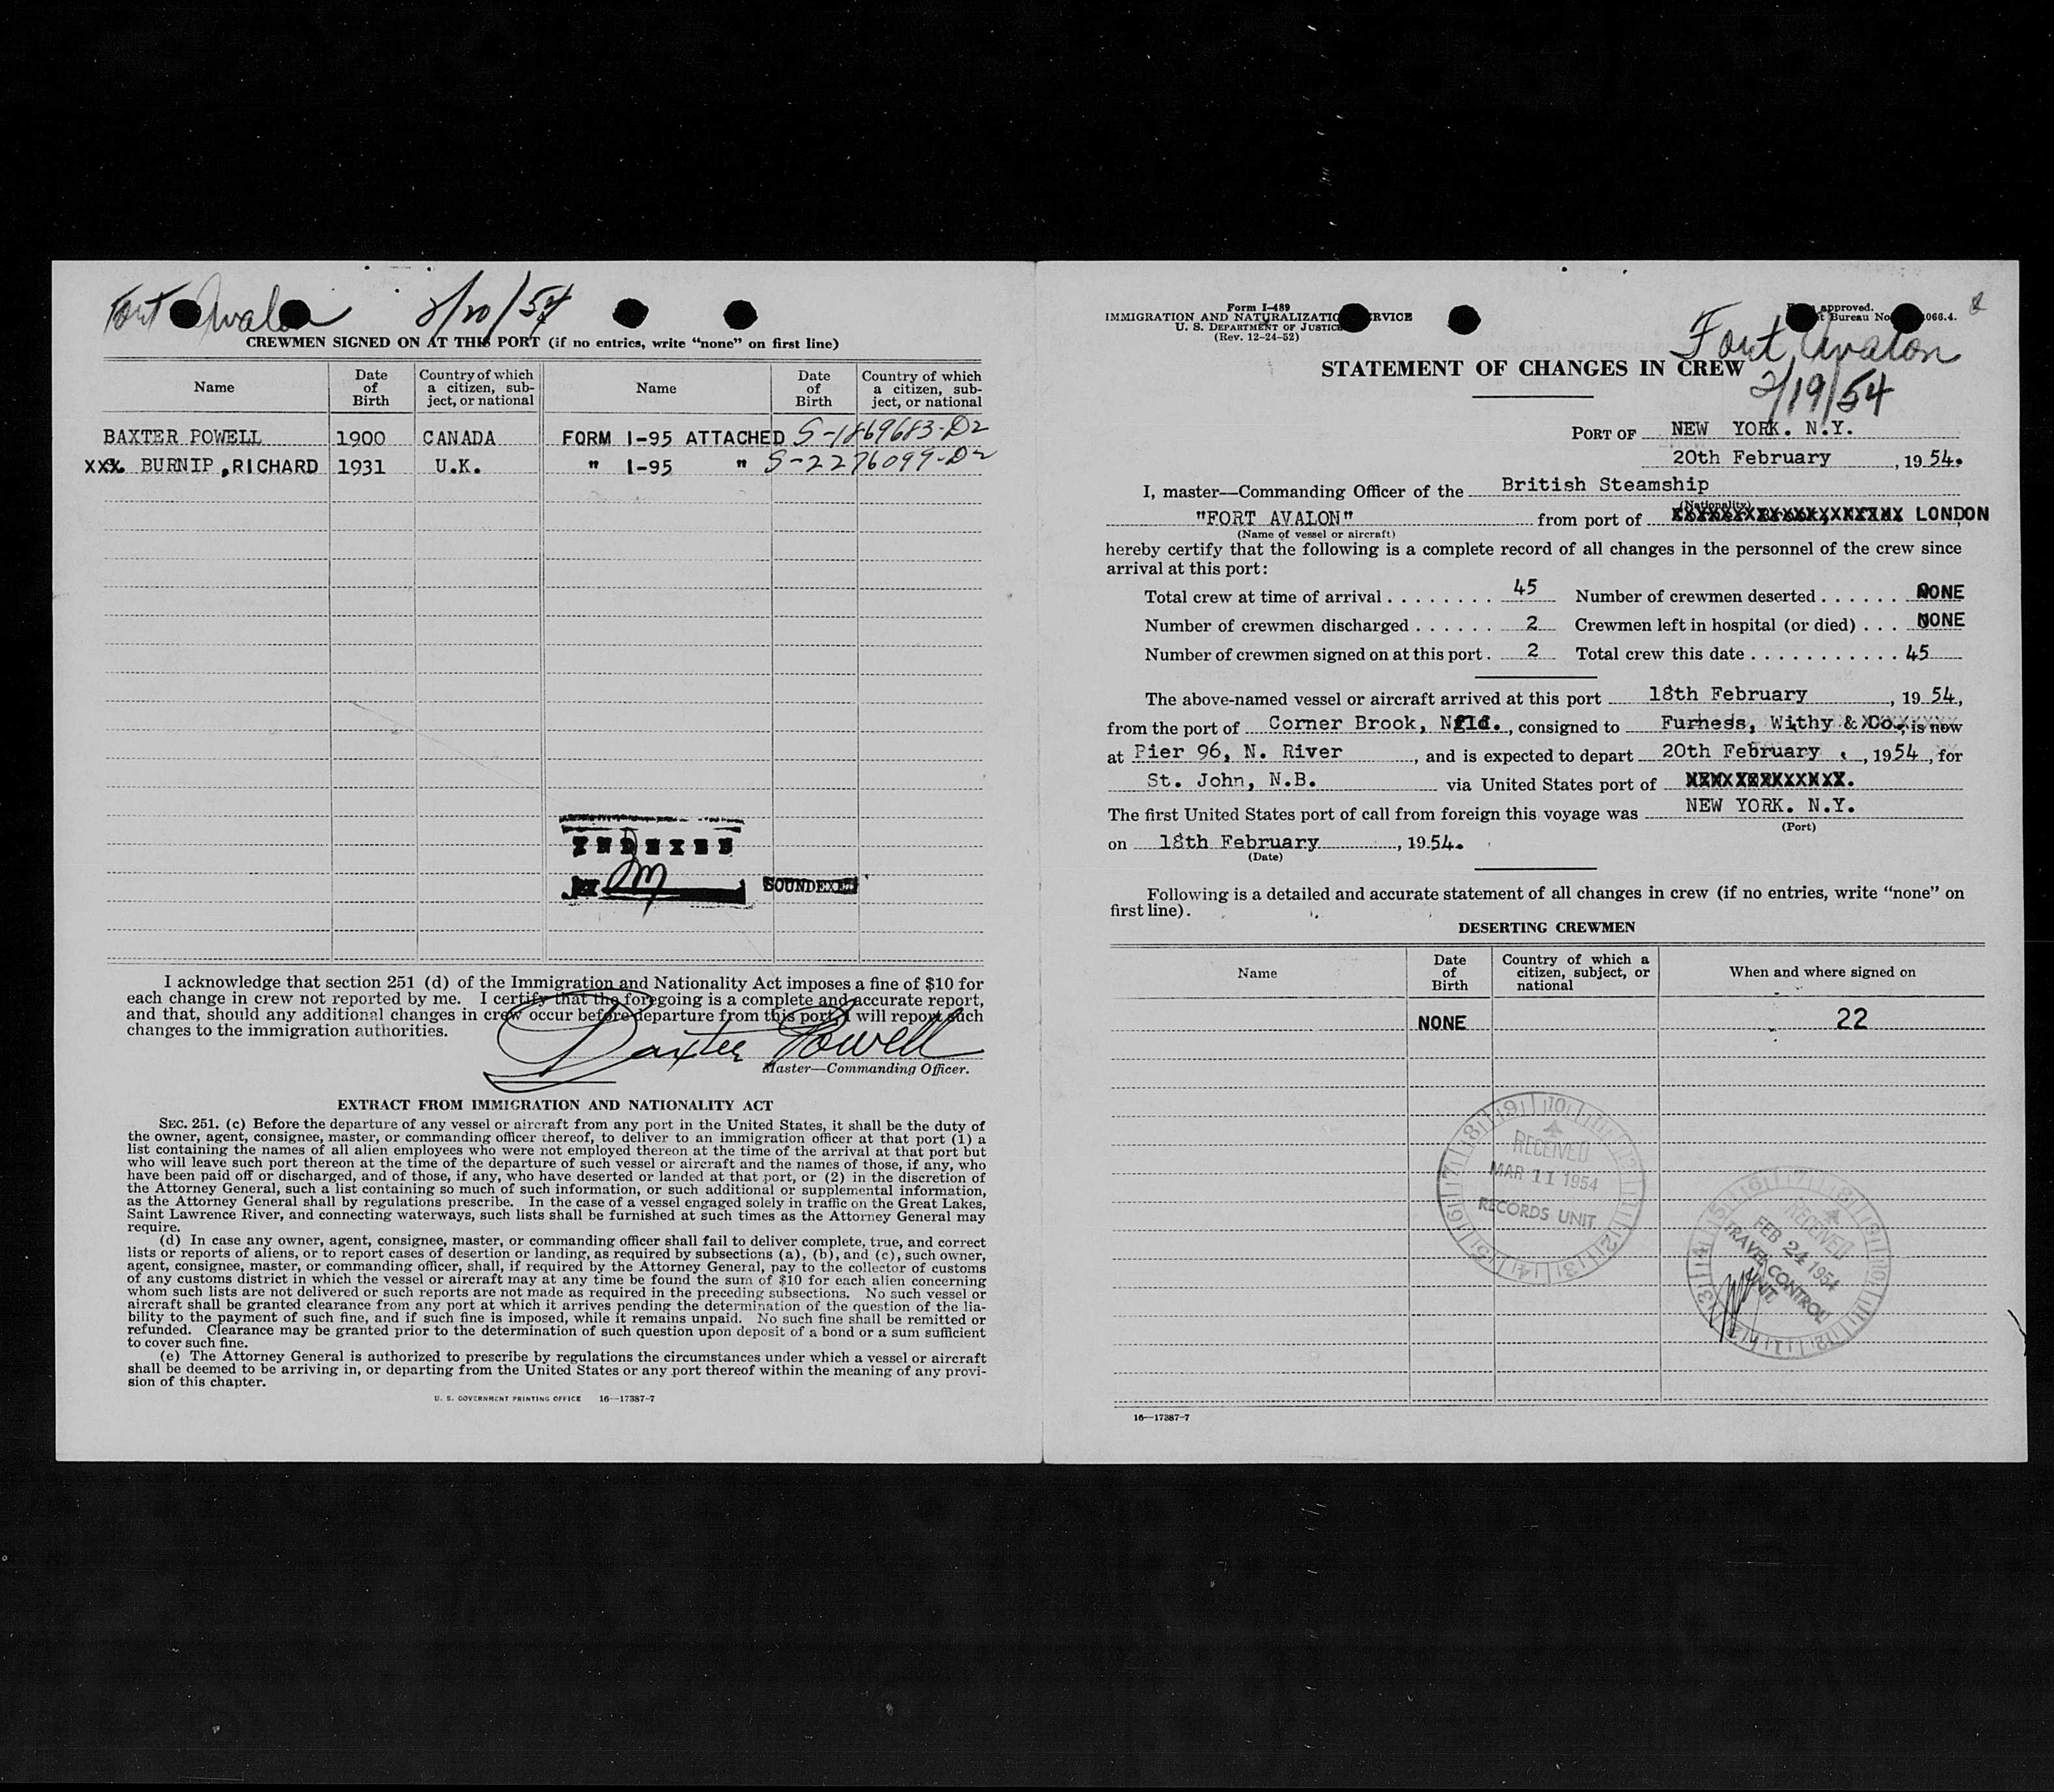 Fort Avalon 2/20/54
CREWMEN SIGNED ON AT THIS PORT (if no entries, write "none" on first line)
Name
Date of Birth
Country of which a citizen, subject, or national
Name
Date of Birth
Country of which a citizen, subject, or national
BAXTER POWELL 1900 CANADA FORM I-95 ATTACHED S-1869683-D2
XXX BURNIP ,RICHARD 1931 U.K. " I-95 " S-2276099-D2
INDEXED
SOUNDEXED
I acknowledge that section 251 (d) of the Immigration and Nationality Act imposes a fine of $10 for
each change in crew not reported by me. I certify that the foregoing is a complete and accurate report,
and that, should any additional changes in crew occur before departure from this port, I will report such
changes to the immigration authorities.
Baxter Powell
Master—Commanding Officer.
EXTRACT FROM IMMIGRATION AND NATIONALITY ACT
SEC. 251. (c) Before the departure of any vessel or aircraft from any port in the United States, it shall be the duty of
the owner, agent, consignee, master, or commanding officer thereof, to deliver to an immigration officer at that port (1) a
list containing the names of all alien employees who were not employed thereon at the time of the arrival at that port but
who will leave such port thereon at the time of the departure of such vessel or aircraft and the names of those, if any, who
have been paid off or discharged, and of those, if any, who have deserted or landed at that port, or (2) in the discretion of
the Attorney General, such a list containing so much of such information, or such additional or supplemental information,
as the Attorney General shall by regulations prescribe. In the case of a vessel engaged solely in traffic on the Great Lakes,
Saint Lawrence River, and connecting waterways, such lists shall be furnished at such times as the Attorney General may
require.
(d) In case any owner, agent, consignee, master, or commanding officer shall fail to deliver complete, true, and correct
lists or reports of aliens, or to report cases of desertion or landing, as required by subsections (a), (b), and (c), such owner,
agent, consignee, master, or commanding officer, shall, if required by the Attorney General, pay to the collector of customs
of any customs district in which the vessel or aircraft may at any time be found the sum of $10 for each alien concerning
whom such lists are not delivered or such reports are not made as required in the preceding subsections. No such vessel or
aircraft shall be granted clearance from any port at which it arrives pending the determination of the question of the lia-
bility to the payment of such fine, and if such fine is imposed, while it remains unpaid. No such fine shall be remitted or
refunded. Clearance may be granted prior to the determination of such question upon deposit of a bond or a sum sufficient
to cover such fine.
(e) The Attorney General is authorized to prescribe by regulations the circumstances under which a vessel or aircraft
shall be deemed to be arriving in, or departing from the United States or any port thereof within the meaning of any provi-
sion of this chapter.
U. S. GOVERNMENT PRINTING OFFICE 16—17387-7
Form I-489
IMMIGRATION AND NATURALIZATION SERVICE
U. S. DEPARTMENT OF JUSTICE
(Rev. 12-24-52)
approved.
Bureau No. 066.4.
Fort Avalon
2/19/54
STATEMENT OF CHANGES IN CREW
PORT OF NEW YORK. N.Y.
20th February, 1954.
I, master—Commanding Officer of the British Steamship
(Nationality)
"FORT AVALON" from port of LONDON
(Name of vessel or aircraft)
hereby certify that the following is a complete record of all changes in the personnel of the crew since
arrival at this port:
Total crew at time of arrival . . . . . . . . 45 Number of crewmen deserted . . . . . . NONE
Number of crewmen discharged . . . . . . 2 Crewmen left in hospital (or died) . . . NONE
Number of crewmen signed on at this port . 2 Total crew this date . . . . . . . . . . . 45
The above-named vessel or aircraft arrived at this port 18th February, 1954,
from the port of Corner Brook, Nfld., consigned to Furness, Withy & Co., is now
at Pier 96, N. River, and is expected to depart 20th February, 1954, for
St. John, N.B. via United States port of
The first United States port of call from foreign this voyage was NEW YORK. N.Y.
(Port)
on 18th February, 1954.
(Date)
Following is a detailed and accurate statement of all changes in crew (if no entries, write "none" on
first line).
DESERTING CREWMEN
Name
Date of Birth
Country of which a citizen, subject, or national
When and where signed on
NONE 22
RECEIVED
MAR 11 1954
RECORDS UNIT
RECEIVED
FEB 24 1954
TRAVEL CONTROL
UNIT
16—17387-7